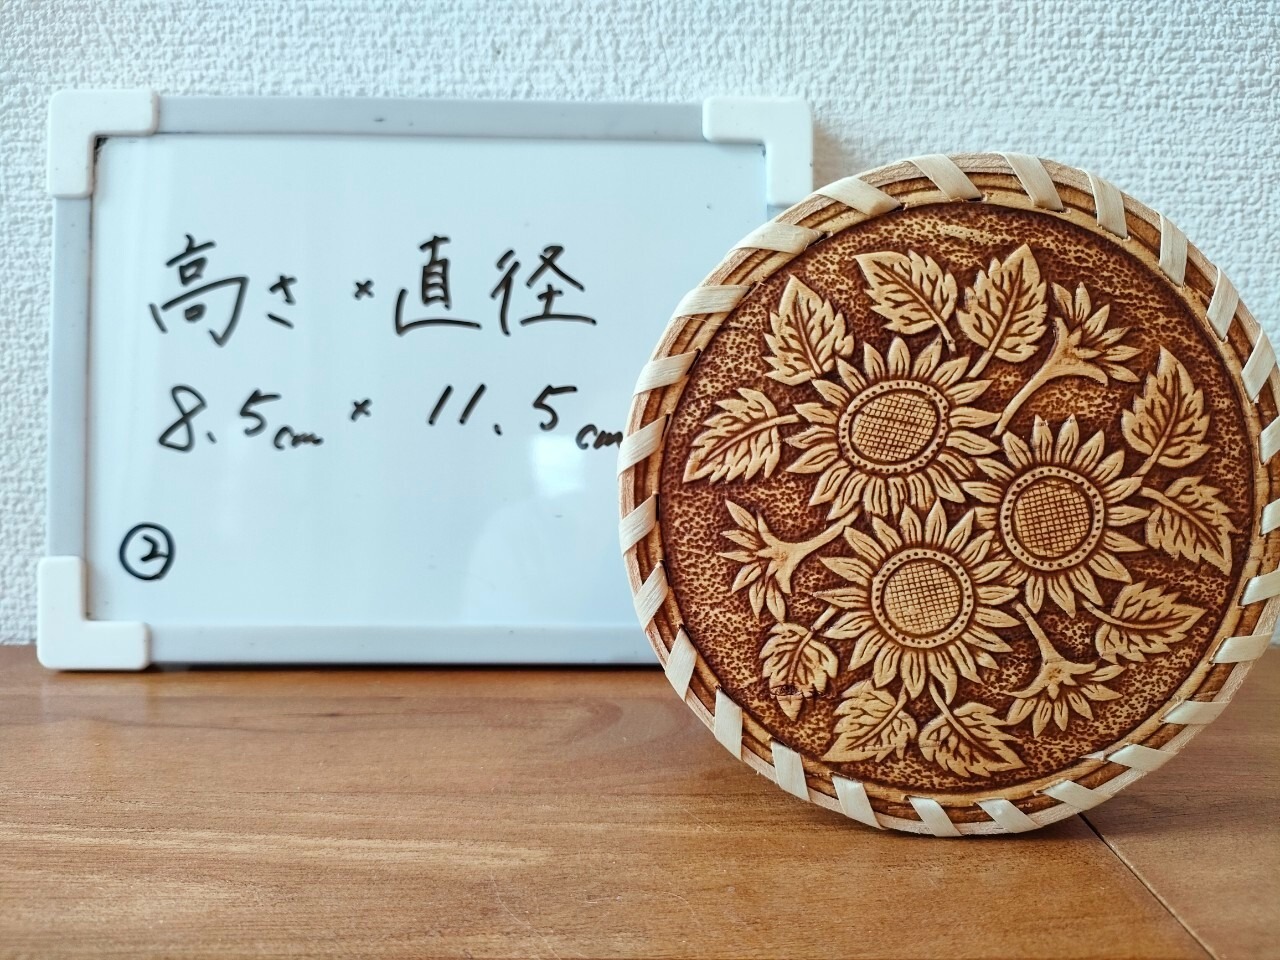 高さ × 直径
8.5cm × 11.5cm
②